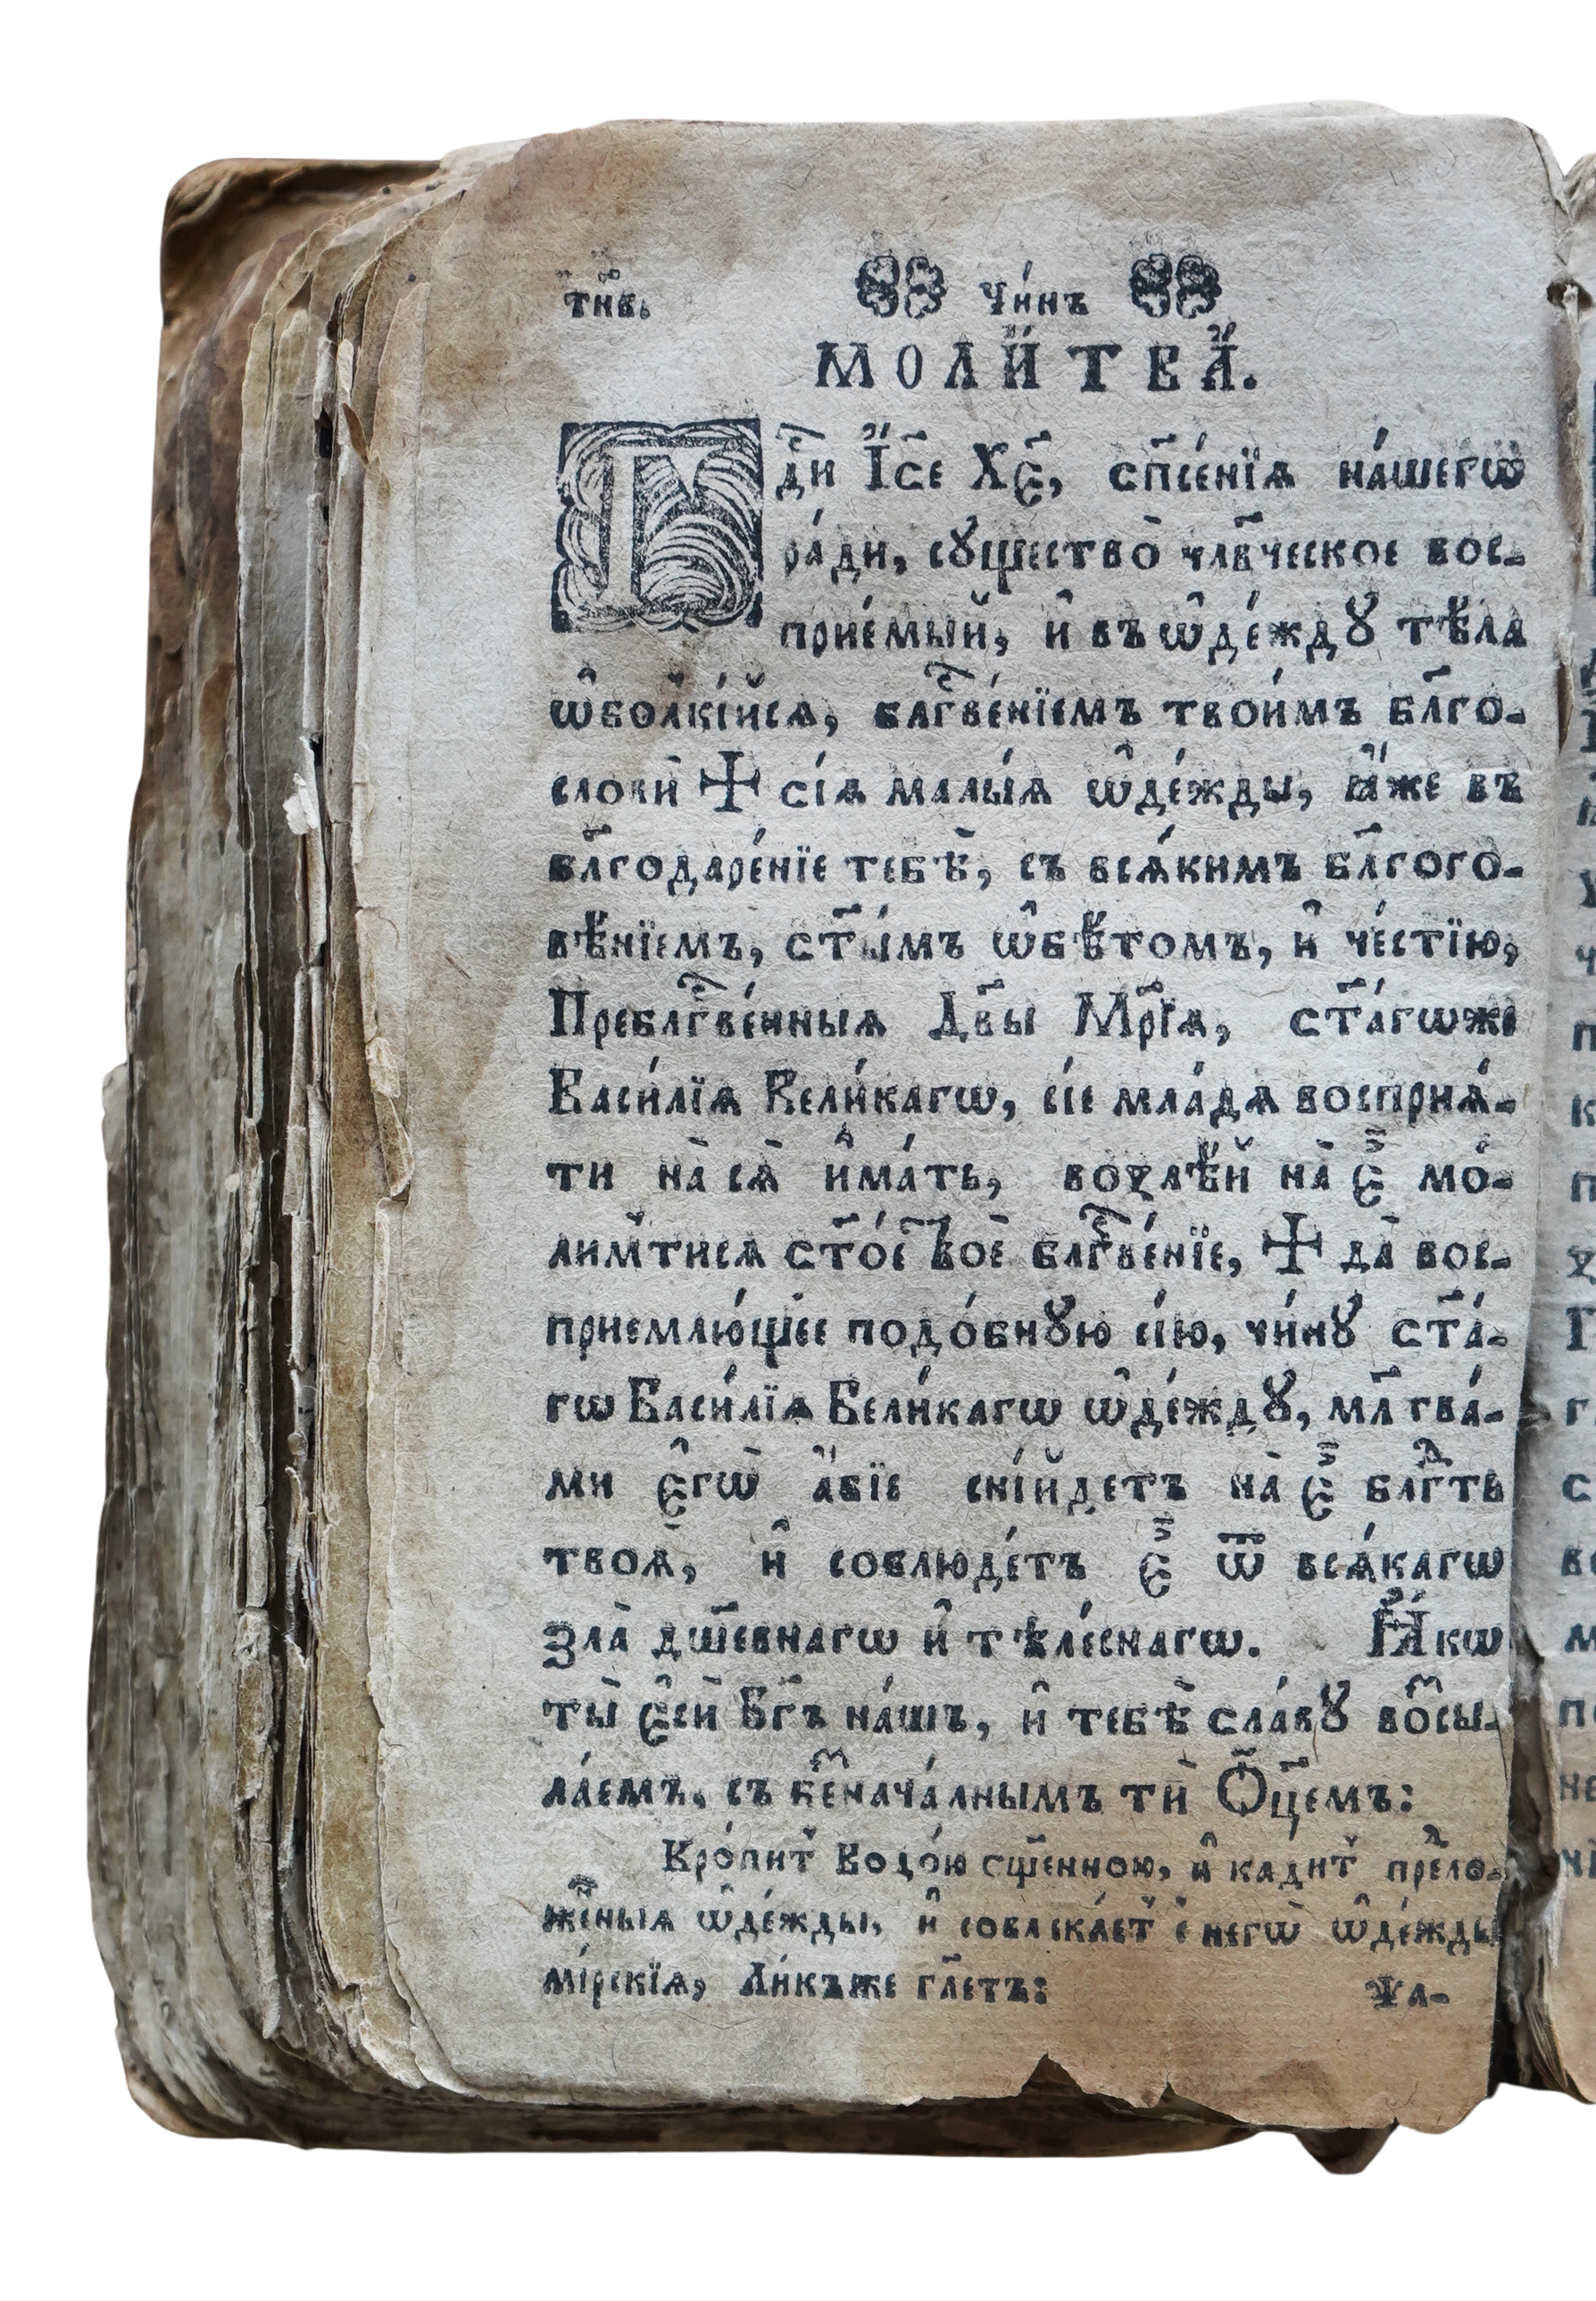 тн҃в. Чи́нъ
МОЛИ́ТВА̀.
Гдⷭ҇и І҆и҃се Хр҃є, сп҃се́нїѧ на́шегѡ
ра́ди, сꙋщество̀ чл҃вческое вос-
прие́мый, и҆ въ ѡ҆де́ждꙋ тѣ́ла
ѡ҆болкі́йсѧ, блгⷭ҇ве́нїемъ твои́мъ бл҃го-
слови̂ ✠ сі́ѧ малы́ѧ ѡ҆де́жды, ꙗ҆́же въ
бл҃годаре́нїе тебѣ̀, съ всѧ́кимъ бл҃гого-
вѣ́нїемъ, ст҃ы́мъ ѡ҆бѣ́томъ, и҆ че́стїю,
Преблгⷭ҇ве́нныѧ Дв҃ы Мр҃і́ѧ, ст҃а́гѡже
Васи́лїѧ Вели́кагѡ, сі́е мла́дѧ восприѧ́-
ти на̀ сѧ̀ и҆ма́ть, возлѣ́й на̀ є҆̀ мо́-
лимⷮтисѧ ст҃о́е твоѐ блгⷭ҇ве́нїе, ✠ да̀ вос-
приемлю́щее подо́бнꙋю сі́ю, чи́нꙋ ст҃а́-
гѡ Васи́лїѧ Вели́кагѡ ѡ҆де́ждꙋ, мл҃тва́-
ми є҆гѡ̀ а҆́бїе сни́йдетъ на̀ є҆̀ блгⷣть
твоѧ̀, и҆ соблюде́тъ є҆̀ ѿ всѧ́кагѡ
зла̀ дш҃евнагѡ и҆ тѣле́снагѡ. Ꙗ҆́кѡ
ты̀ є҆сѝ Бг҃ъ на́шъ, и҆ тебѣ̀ сла́вꙋ во́зсы-
ла́емъ, съ беⷥнача́лнымъ тѝ Ѻ҆ц҃емъ:
Кро́питⸯ Водо́ю сщ҃енною, и҆ кадитⸯ преⷣло-
же́ныѧ ѡ҆де́жды, и҆ совлека́етⸯ с̾ негѡ̀ ѡ҆де́жды
мірскїѧ, Ли́къже гл҃етъ: Ѱа-